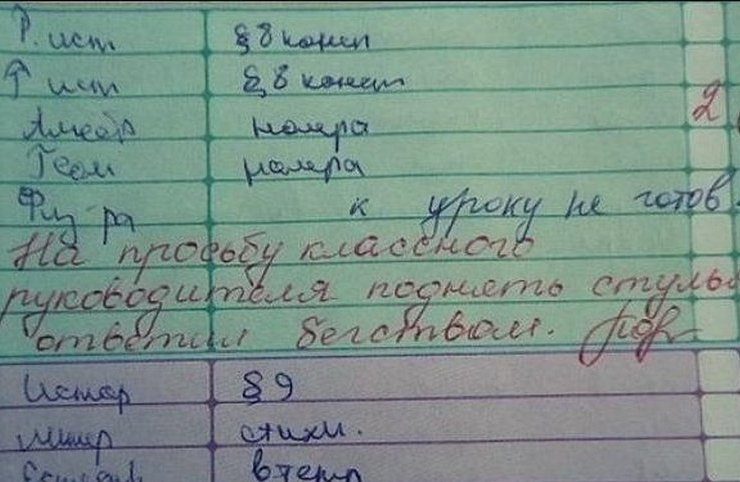 Р. ист § 8 консп
Р ист § 8 консп
Алгебр номера 2
Геом номера
Физ-ра к уроку не готов.
На просьбу классного
руководителя поднять стулья
ответил бегством.
Истор § 9
Литер стихи.
в тетр